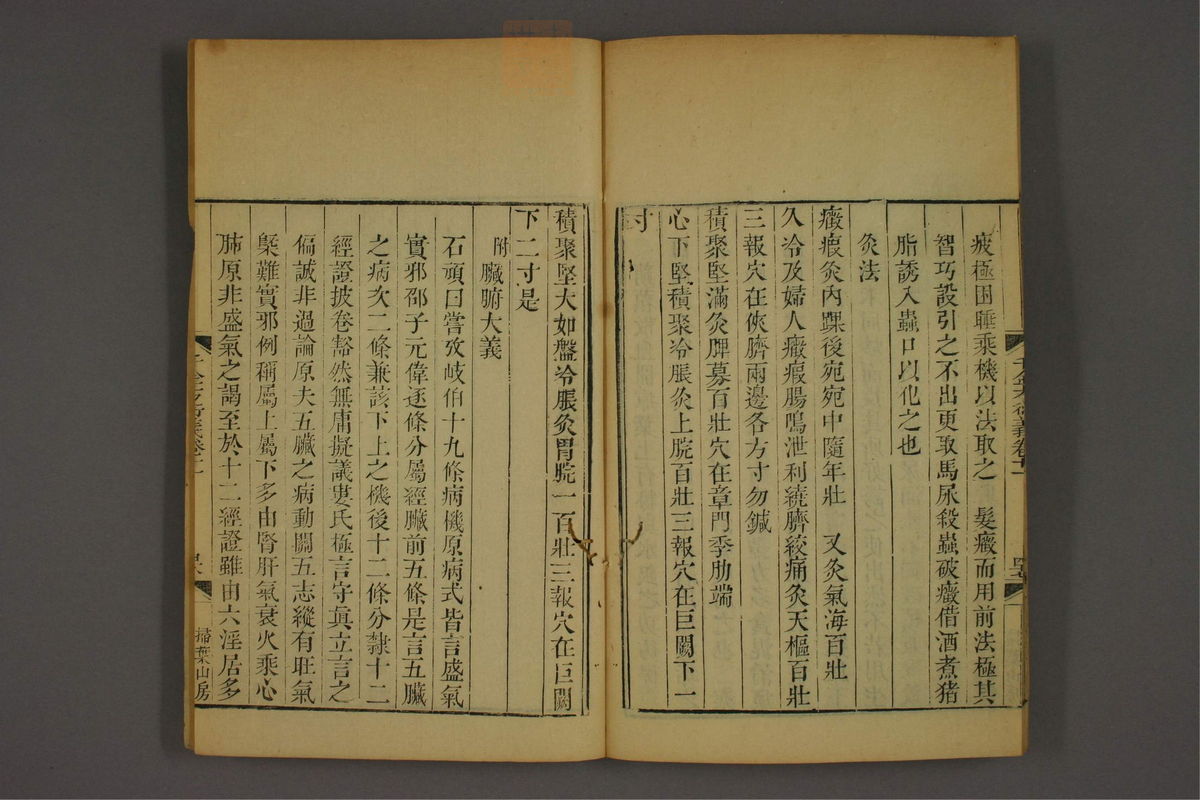 疲極困睡乘機以法取之 髮癥而用前法極其
智巧設引之不出更取馬尿殺蟲破癥借酒煮猪
脂誘入蟲口以化之也
灸法
癥瘕灸內踝後宛宛中隨年壯 又灸氣海百壯
久冷及婦人癥瘕腸鳴泄利繞臍絞痛灸天樞百壯
三報穴在俠臍兩邊各方寸勿鍼
積聚堅滿灸脾募百壯穴在章門季肋端
心下堅積聚冷脹灸上脘百壯三報穴在巨闕下一
寸
積聚堅大如盤冷脹灸胃脘一百壯三報穴在巨闕
下二寸是
附臟腑大義
石頑曰嘗攷岐伯十九條病機原病式皆言盛氣
實邪邵子元偉逐條分屬經臟前五條是言五臟
之病次二條兼該下上之機後十二條分隸十二
經證披卷豁然無庸擬議婁氏極言守真立言之
偏誠非過論原夫五臟之病動關五志縱有旺氣
槩難實邪例稱屬上屬下多由腎肝氣衰火乘心
肺原非盛氣之謁至於十二經證雖由六淫居多
掃葉山房